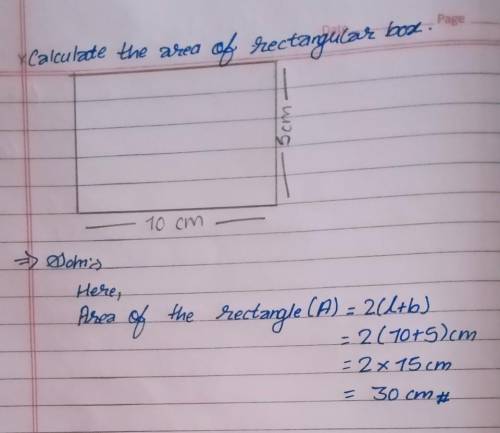 Page
Date
* Calculate the area of rectangular box.
5cm
10 cm
=> Soln:->
Here,
Area of the rectangle (A) = 2(l+b)
= 2(10+5)cm
= 2×15cm
= 30 cm #